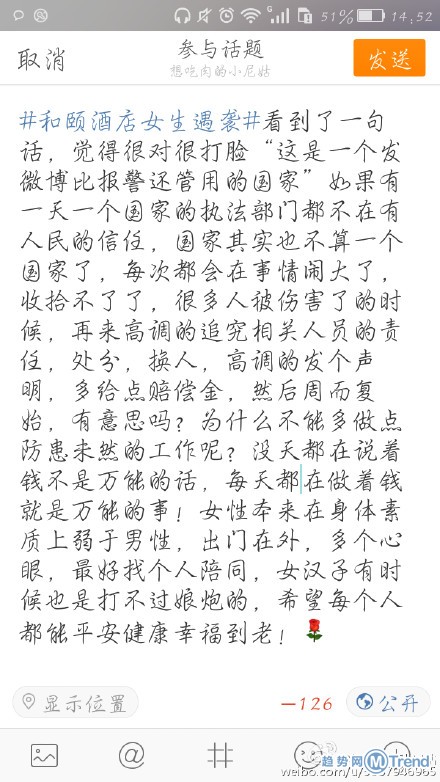 51% 14,52
取消 参与话题 发送
想吃肉的小尼姑
#和颐酒店女生遇袭#看到了一句
话，觉得很对很打脸“这是一个发
微博比报警还管用的国家”如果有
一天一个国家的执法部门都不在有
人民的信任，国家其实也不算一个
国家了，每次都会在事情闹大了，
收拾不了了，很多人被伤害了的时
候，再来高调的追究相关人员的责
任，处分，换人，高调的发个声
明，多给点赔偿金，然后周而复
始，有意思吗？为什么不能多做点
防患未然的工作呢？没天都在说着
钱不是万能的话，每天都在做着钱
就是万能的事！女性本来在身体素
质上弱于男性，出门在外，多个心
眼，最好找个人陪同，女汉子有时
候也是打不过娘炮的，希望每个人
都能平安健康幸福到老！
显示位置 -126 公开
趋势网 MTrend